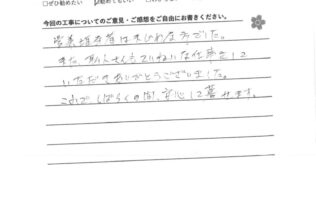 □ぜひ勧めたい
今回の工事についてのご意見・ご感想をご自由にお書きください。
営業担当者はすばらしい方でした。
また、職人さんもていねいな仕事をして
いただきありがとうございました。
これでしばらくの間、安心して暮せます。